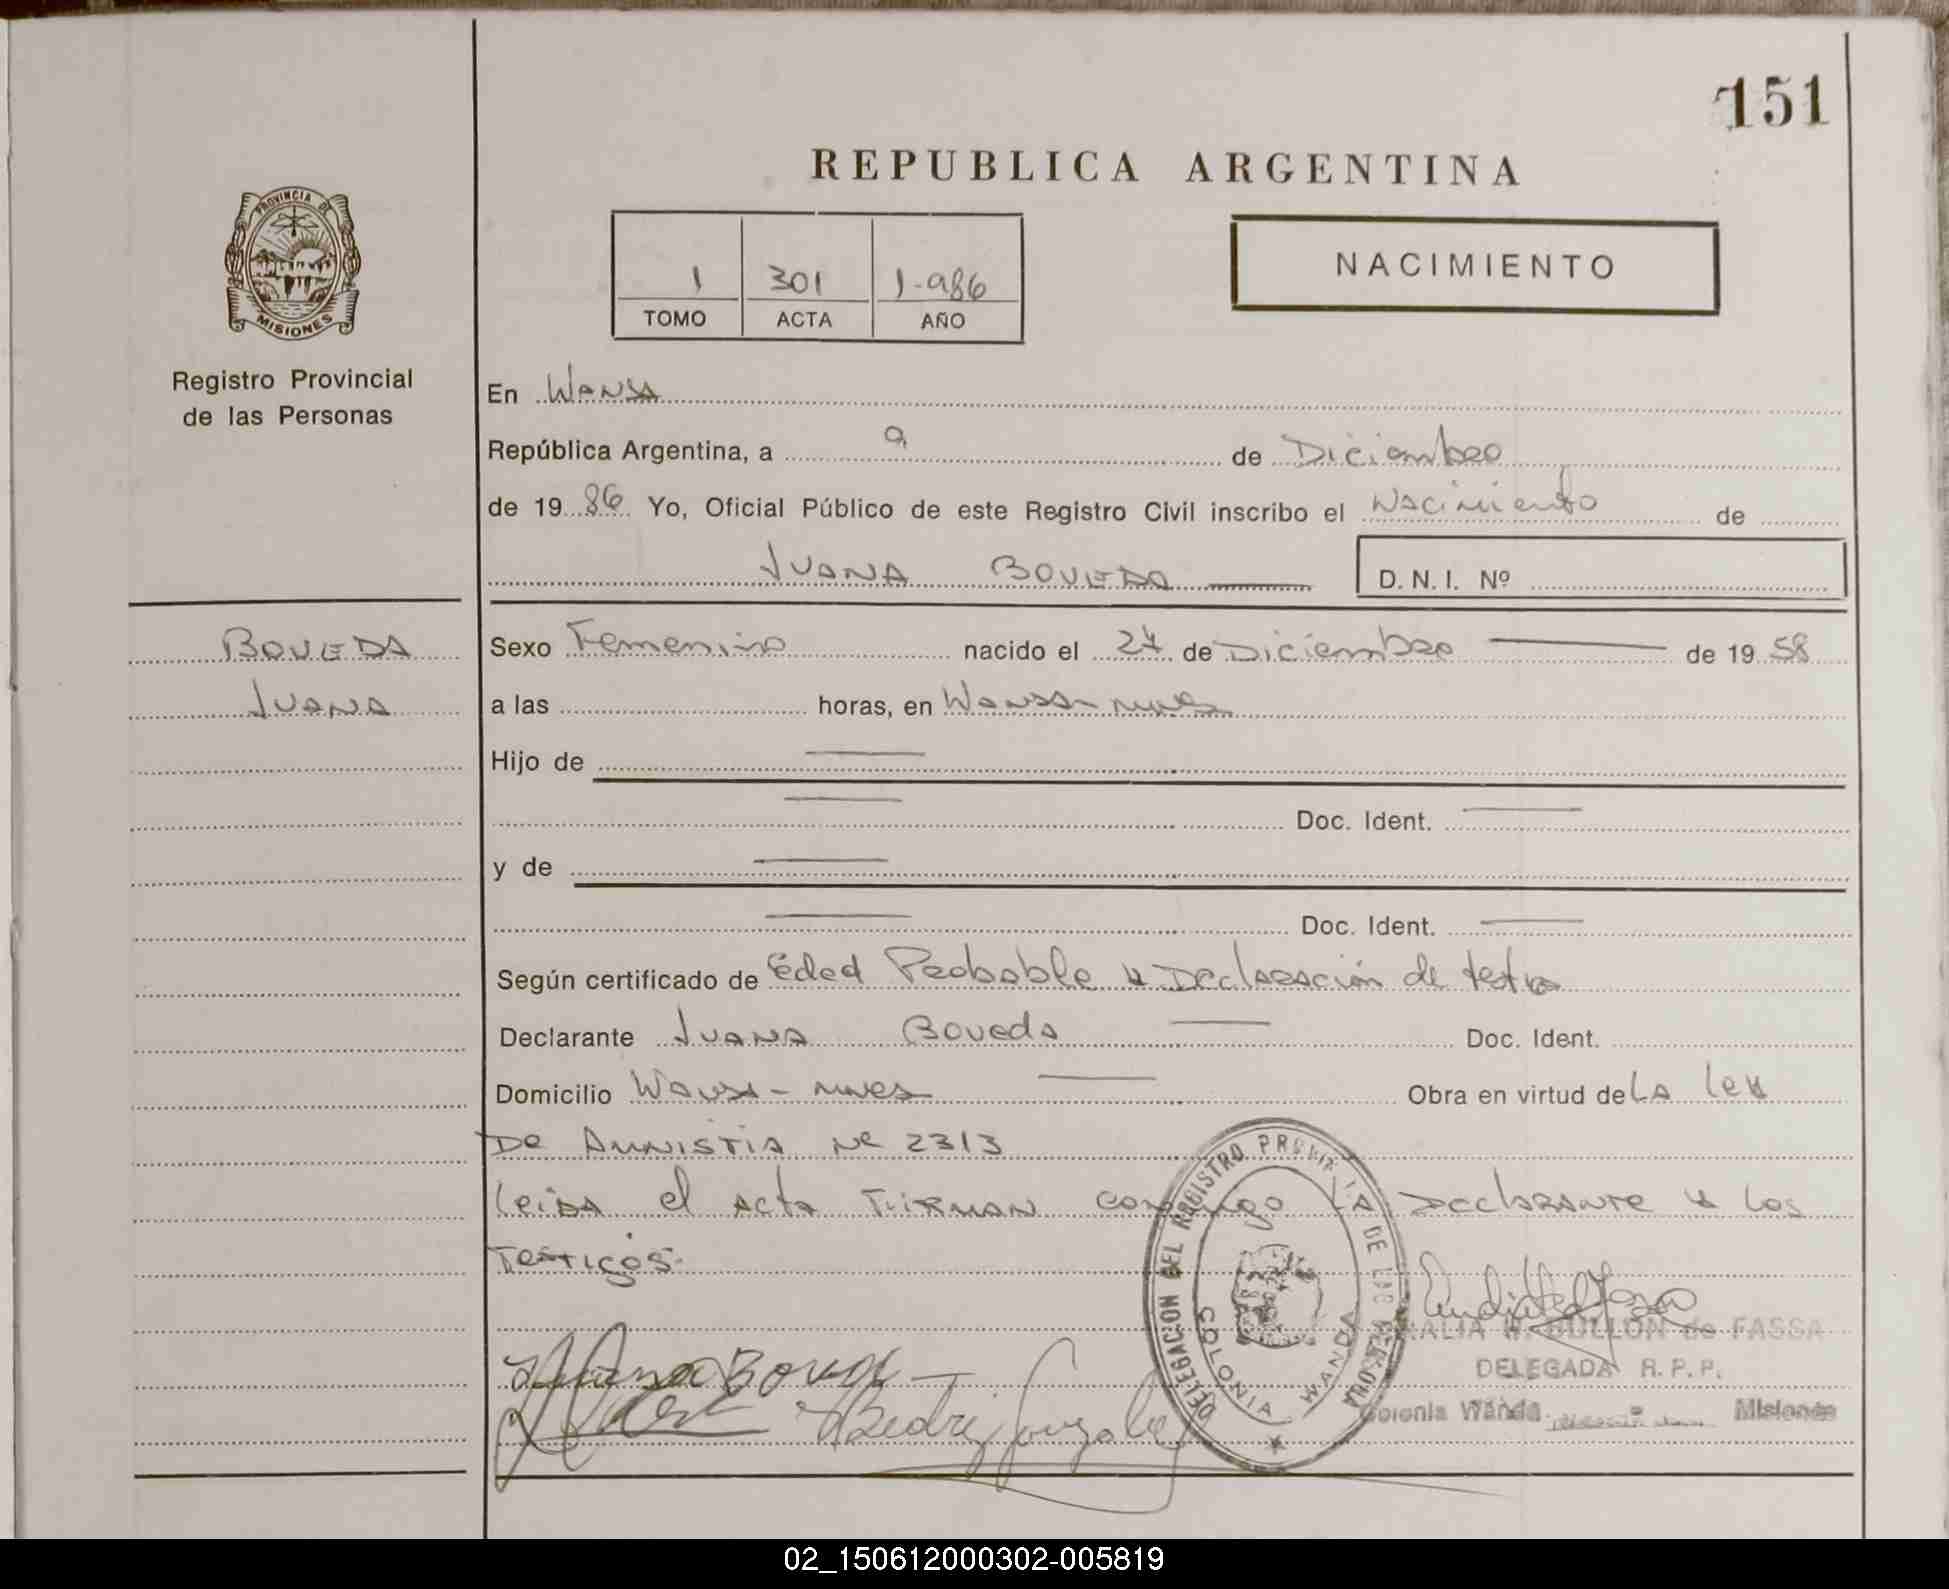 151
REPUBLICA ARGENTINA
PROVINCIA DE
MISIONES
Registro Provincial
de las Personas
1 301 1.986
TOMO ACTA AÑO
NACIMIENTO
En Wanda
República Argentina, a 9 de Diciembre
de 19 86 Yo, Oficial Público de este Registro Civil inscribo el Nacimiento de
JUANA BOVEDA
D.N.I. Nº
BOVEDA
JUANA
Sexo Femenino nacido el 27 de Diciembre de 19 58
a las horas, en Wanda - mnes
Hijo de
Doc. Ident.
y de
Doc. Ident.
Según certificado de Edad Probable y Declaración de testigo
Declarante JUANA Boveda Doc. Ident.
Domicilio Wanda - mnes Obra en virtud de LA ley
De AMNISTIA Nº 2313
Leida el Acta Firman conmigo LA Declarante y los
Testigos.
DELEGACION DEL REGISTRO PROVINCIAL DE LAS PERSONAS
COLONIA WANDA
BULLON de FASSA
DELEGADA R.P.P.
Colonia Wanda Misiones
Juana Boveda
02_150612000302-005819